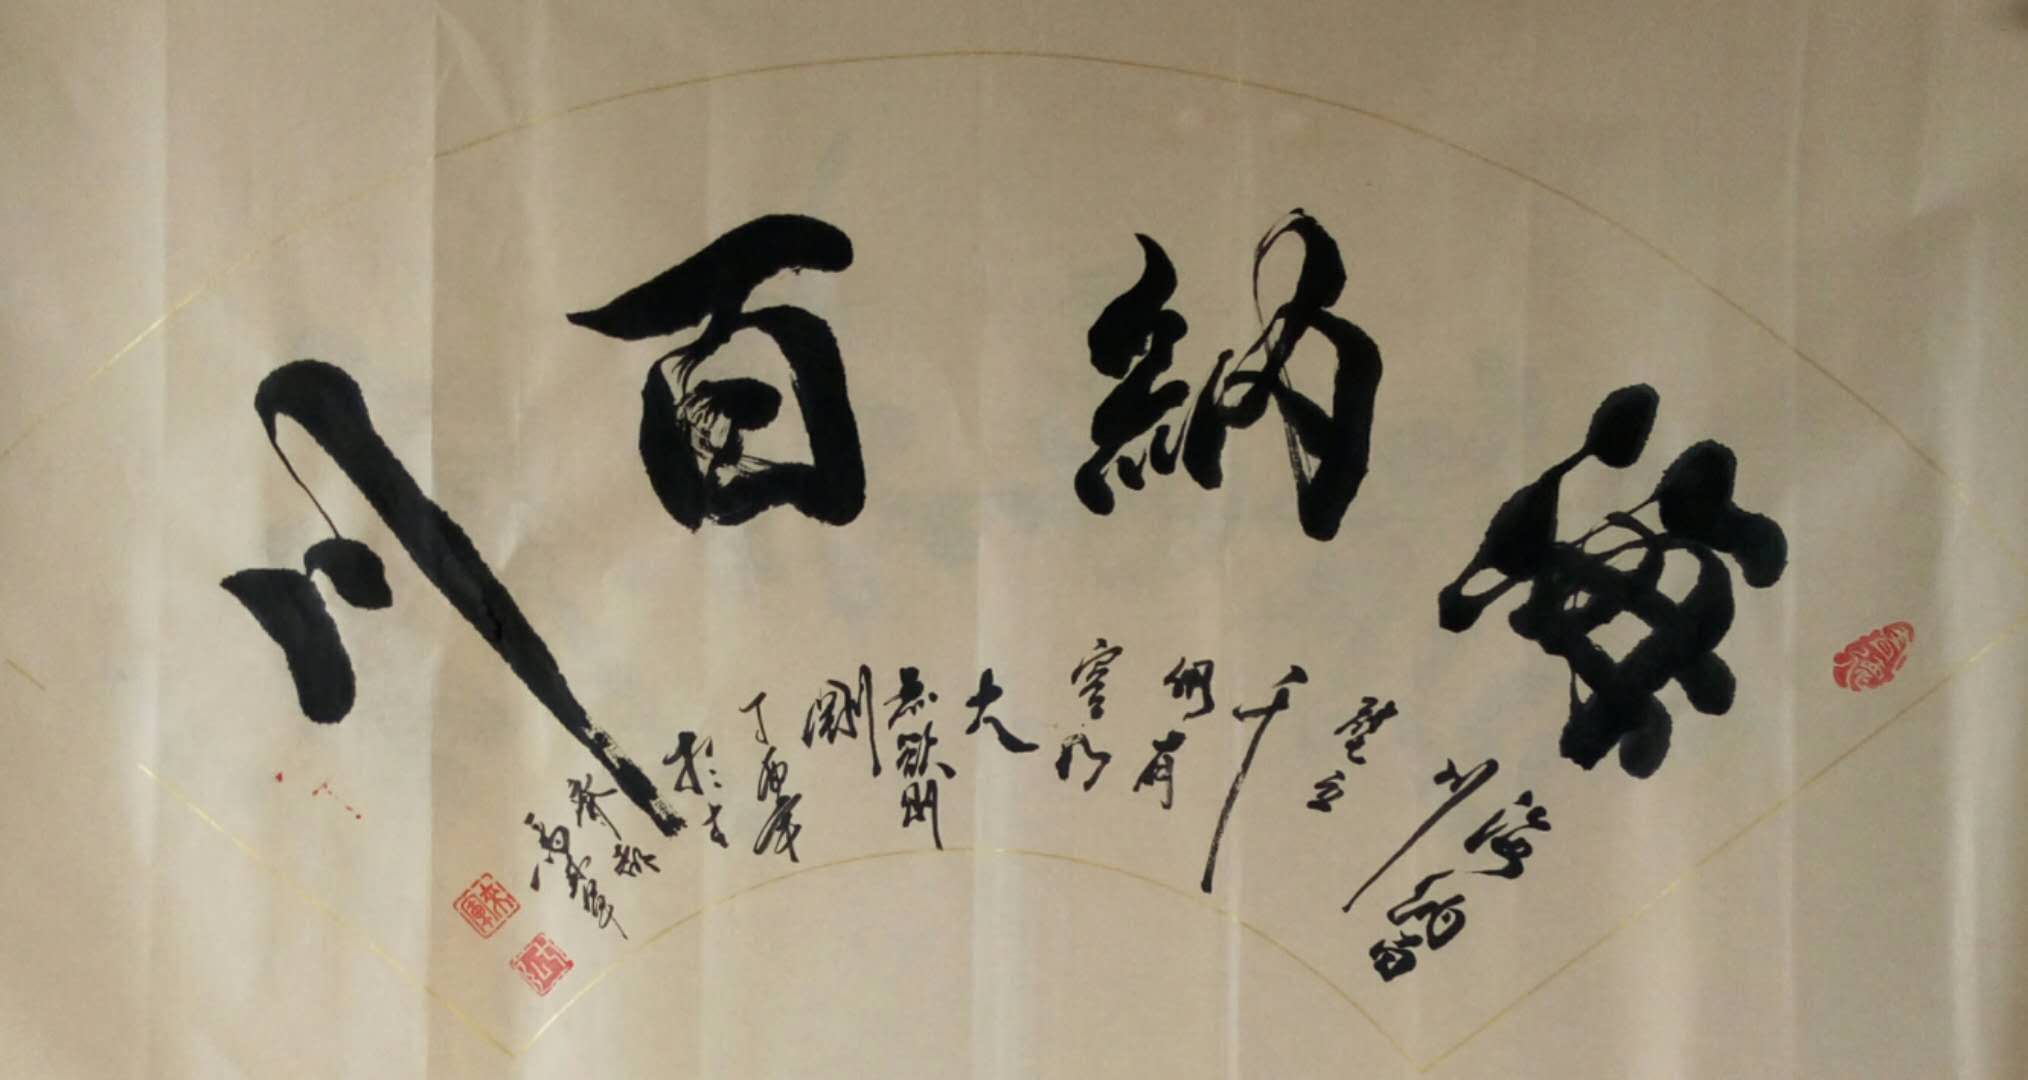 海納百川
海納百
川
壁立
千
仞有
容乃
大
無欲則
剛
丁酉年
於古
齊都